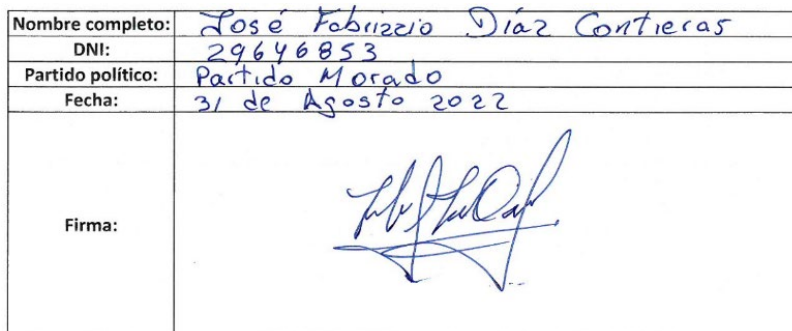 Nombre completo: José Fabrizzio Díaz Contreras
DNI: 29646853
Partido político: Partido Morado
Fecha: 31 de Agosto 2022
Firma: